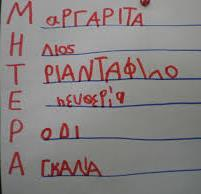 Μ αΡΓΑΡΙΤΑ
Η λιος
Τ ΡΙΑΝΤΑΦΙλο
Ε λευθερία
Ρ οΔΙ
Α ΓΚΑλΙΑ